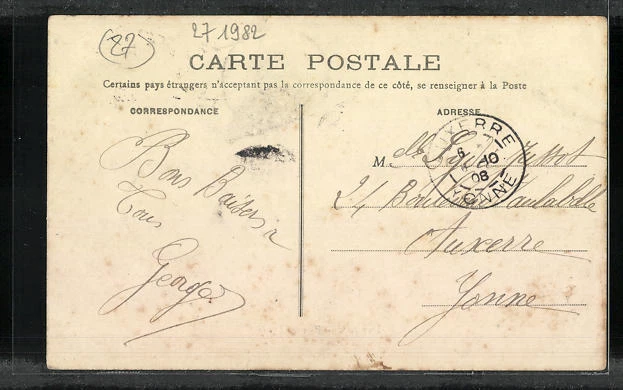 27
27 1982
CARTE POSTALE
Certains pays étrangers n'acceptant pas la correspondance de ce côté, se renseigner à la Poste
CORRESPONDANCE
ADRESSE
Bons Baisers à
Tous
Georges
AUXERRE
10
08
YONNE
M
24 Boulevard Vaulabelle
Auxerre
Yonne